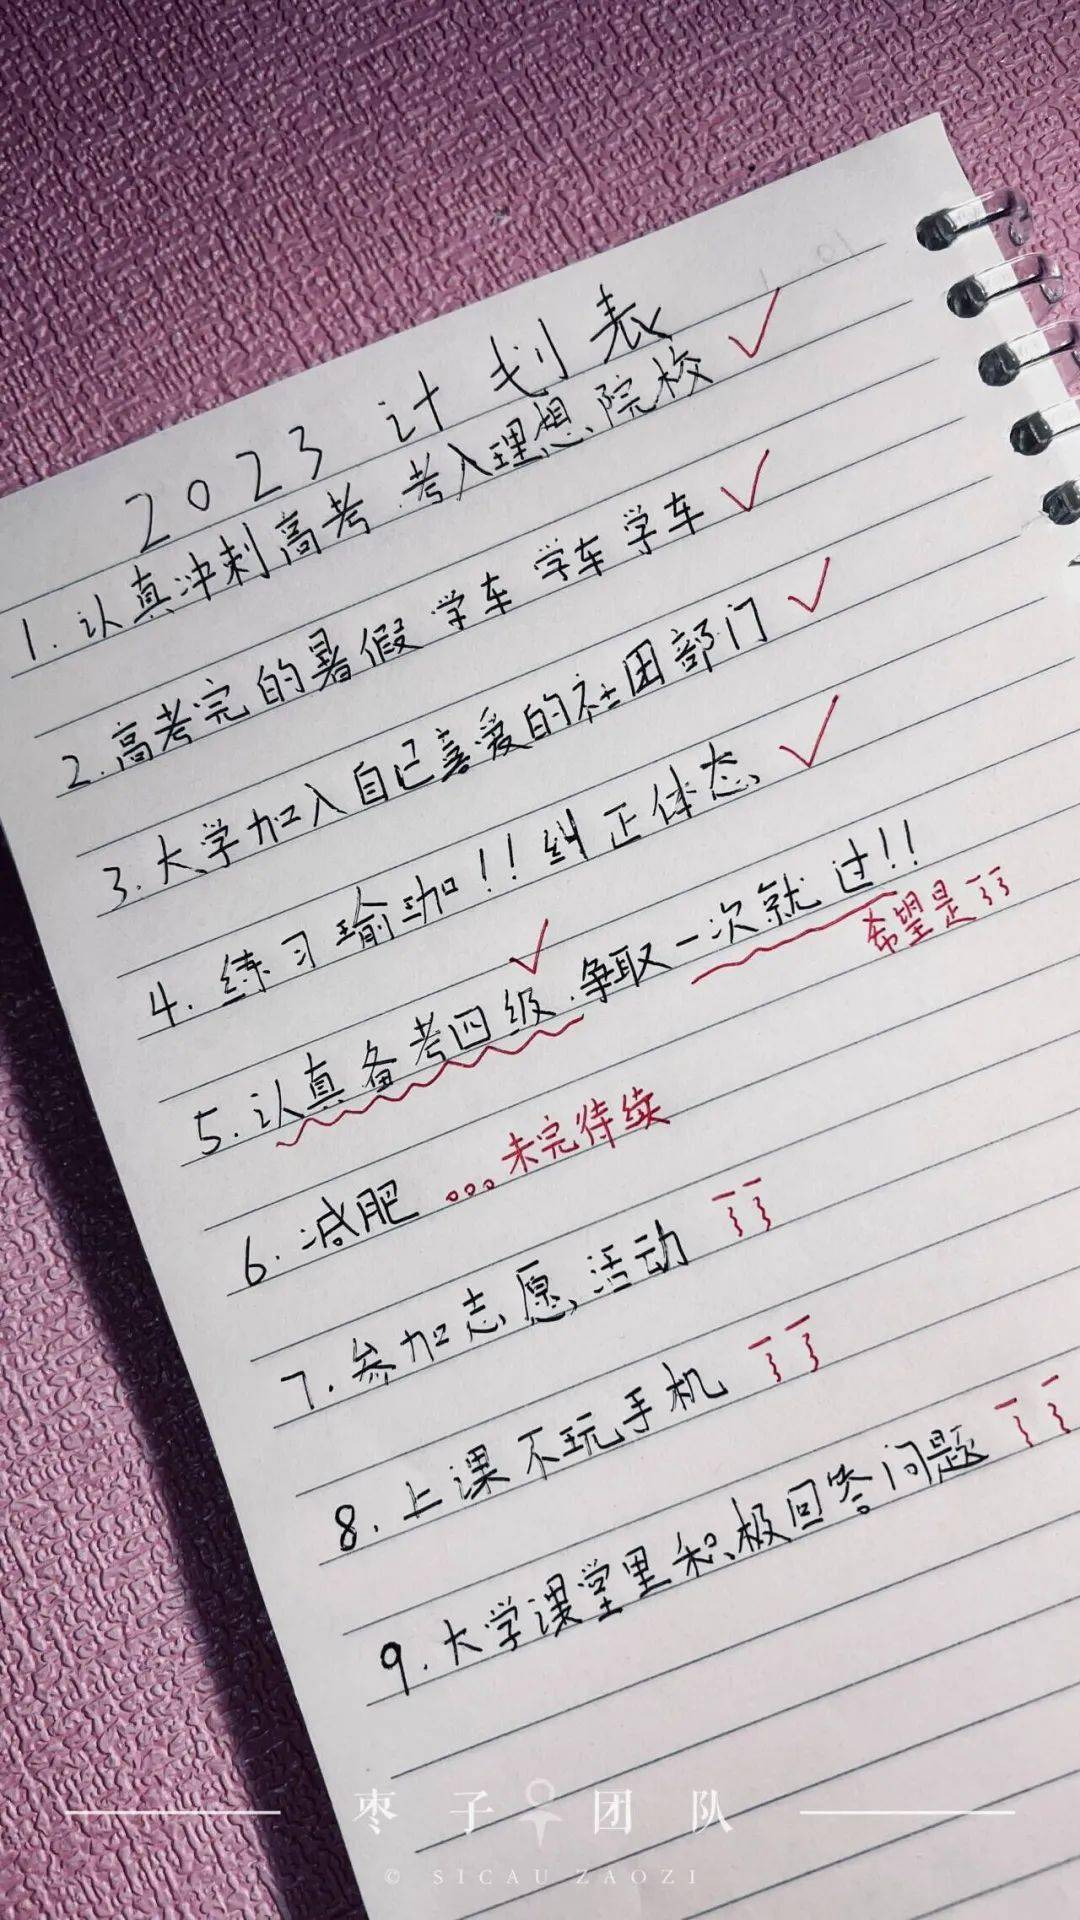 2023 计划表
1. 认真冲刺高考 考入理想院校 ✓
2. 高考完的暑假 学车 学车 学车 ✓
3. 大学加入自己喜爱的社团部门 ✓
4. 练习瑜珈!! 纠正体态 ✓
5. 认真备考四级 ✓ . 争取一次就过!!
希望是
6. 减肥 。。。未完待续
7. 参加志愿活动
8. 上课不玩手机
9. 大学课堂里积极回答问题
枣子团队
© SICAU ZAOZI